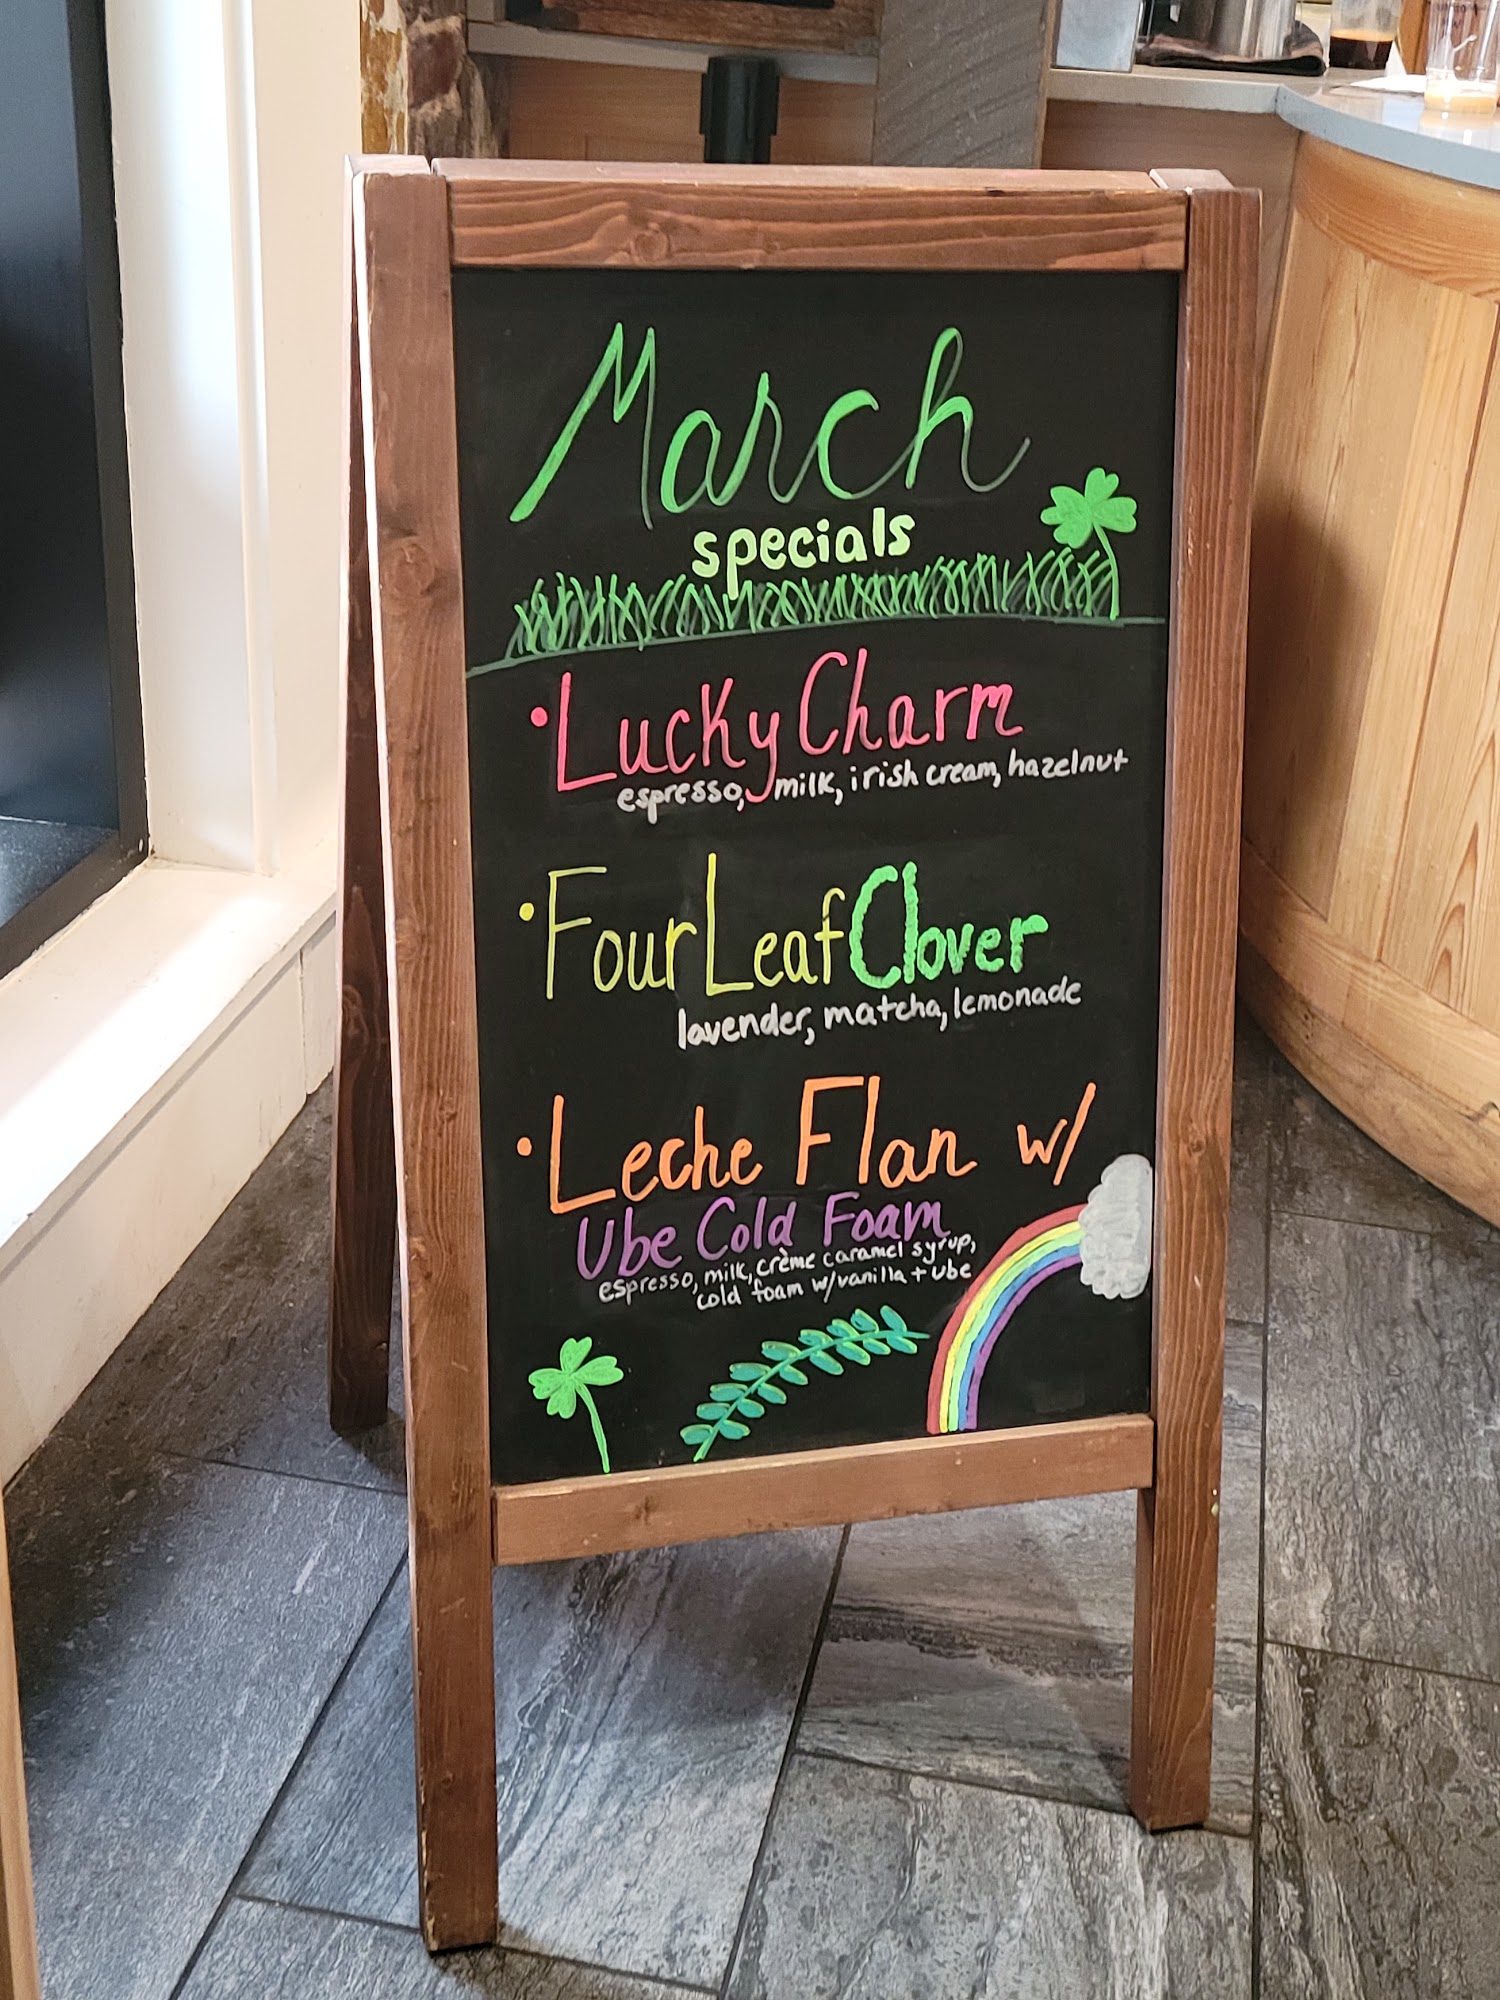 March
specials
• Lucky Charm
espresso, milk, irish cream, hazelnut
• Four Leaf Clover
lavender, matcha, lemonade
• Leche Flan w/
Ube Cold Foam
espresso, milk, crème caramel syrup,
cold foam w/vanilla + ube